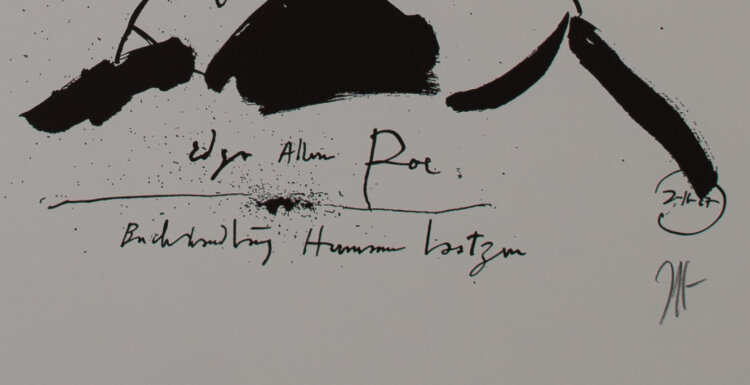 Edgar Allen Poe.
Buchhandlung Hermann Laatzen